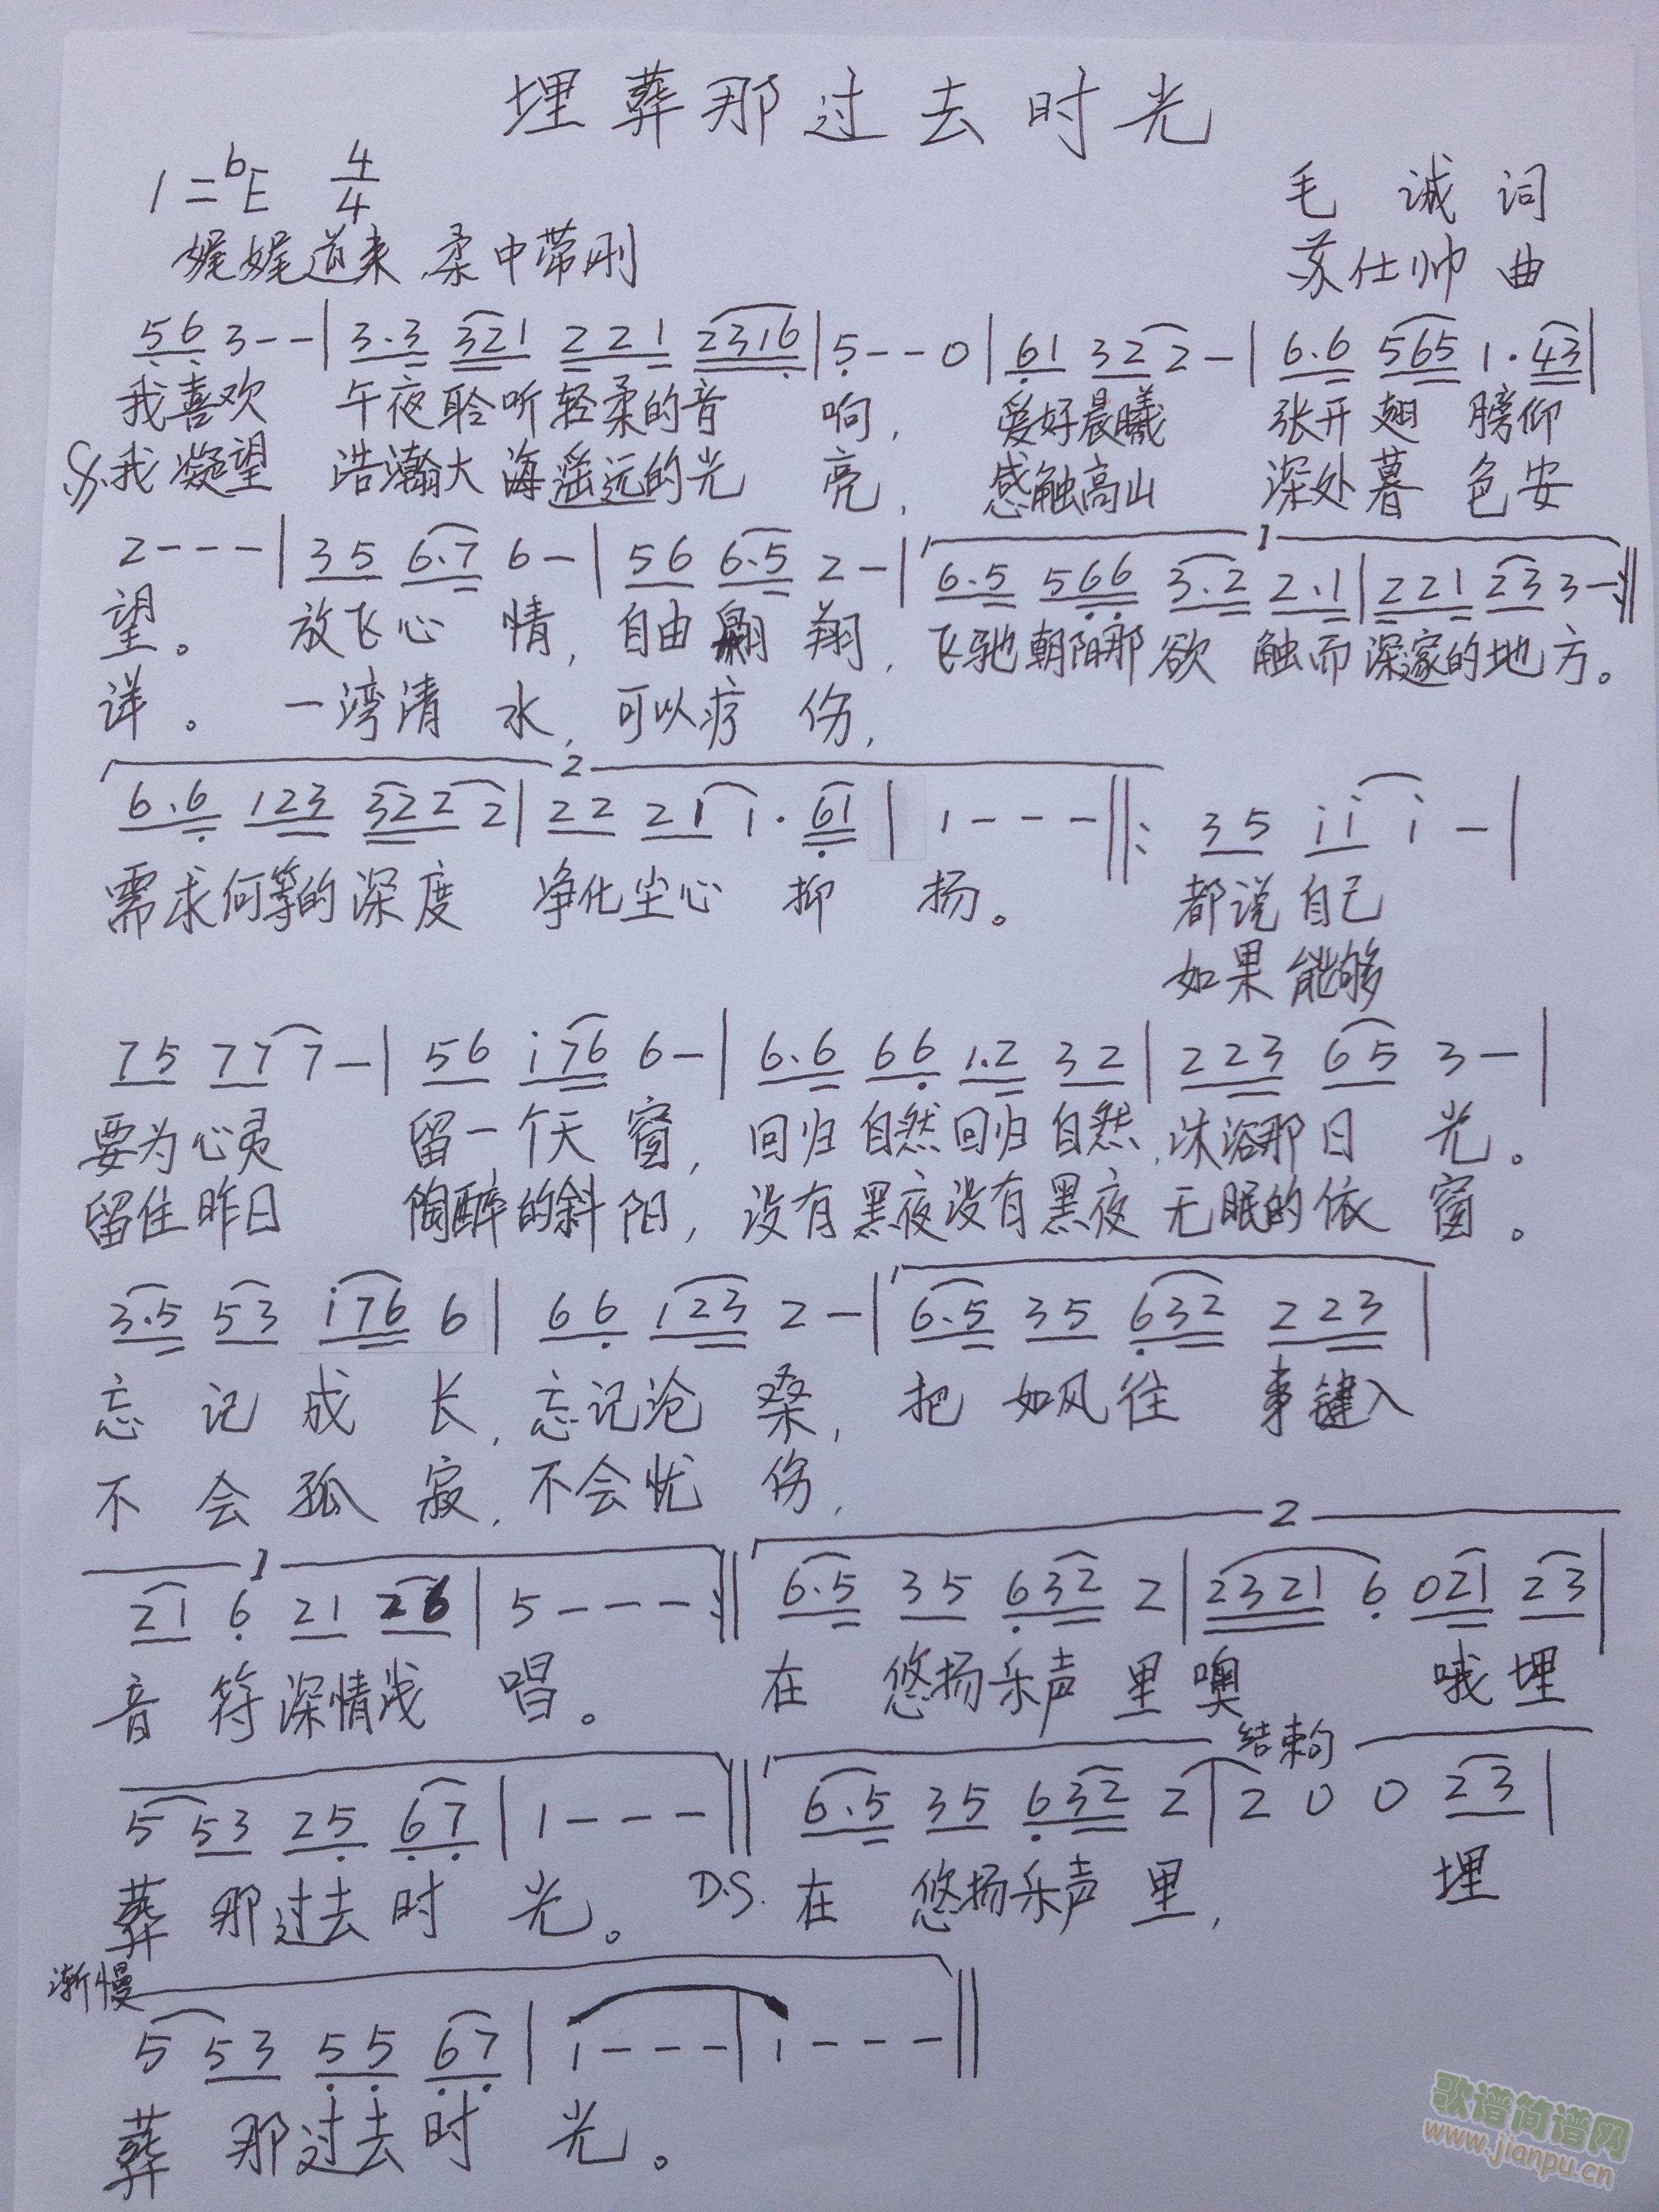 埋葬那过去时光
1=bE 4/4
毛诚词
娓娓道来,柔中带刚
苏仕帅 曲
56 3--|3.3 321 221 2316|5--0|61 32 2-|6.6 565 1.43|
我喜欢 午夜聆听轻柔的音 响, 爱好晨曦 张开翅 膀仰
我凝望 浩瀚大海遥远的光 亮, 感触高山 深处暮 色安
2---|35 6.7 6-|56 6.5 2-|1 6.5 566 3.2 2.1|221 23 3-:‖
望。 放飞心 情, 自由翱 翔, 飞驰朝阳那欲 触而深邃的地方。
详。 一湾清 水, 可以疗 伤,
2
6.6 123 322 2|22 21 1.61|1---‖: 35 ii i-|
需求何等的深度 净化尘心 抑 扬。 都说自己
如果能够
75 77 7-|56 i76 6-|6.6 66 1.2 32|223 65 3-|
要为心灵 留一个天 窗, 回归自然回归自然,沐浴那日 光。
留住昨日 陶醉的斜 阳, 没有黑夜没有黑夜 无眠的依 窗。
3.5 53 i76 6|66 123 2-|6.5 35 632 223|
忘 记 成 长,忘记沧 桑, 把 如风往 事键入
不 会 孤 寂,不会忧 伤,
1 2
21 6 21 26|5---:‖6.5 35 632 2|2321 6 021 23|
音 符深情浅 唱。 在 悠扬乐声 里噢 哦埋
结束句
5 53 25 67|1---‖6.5 35 632 2|2 0 0 23|
葬 那过去 时 光。 D.S. 在 悠扬乐声 里, 埋
渐慢
5 53 55 67|1---|1---‖
葬 那过去 时 光。
歌谱简谱网
www.jianpu.cn